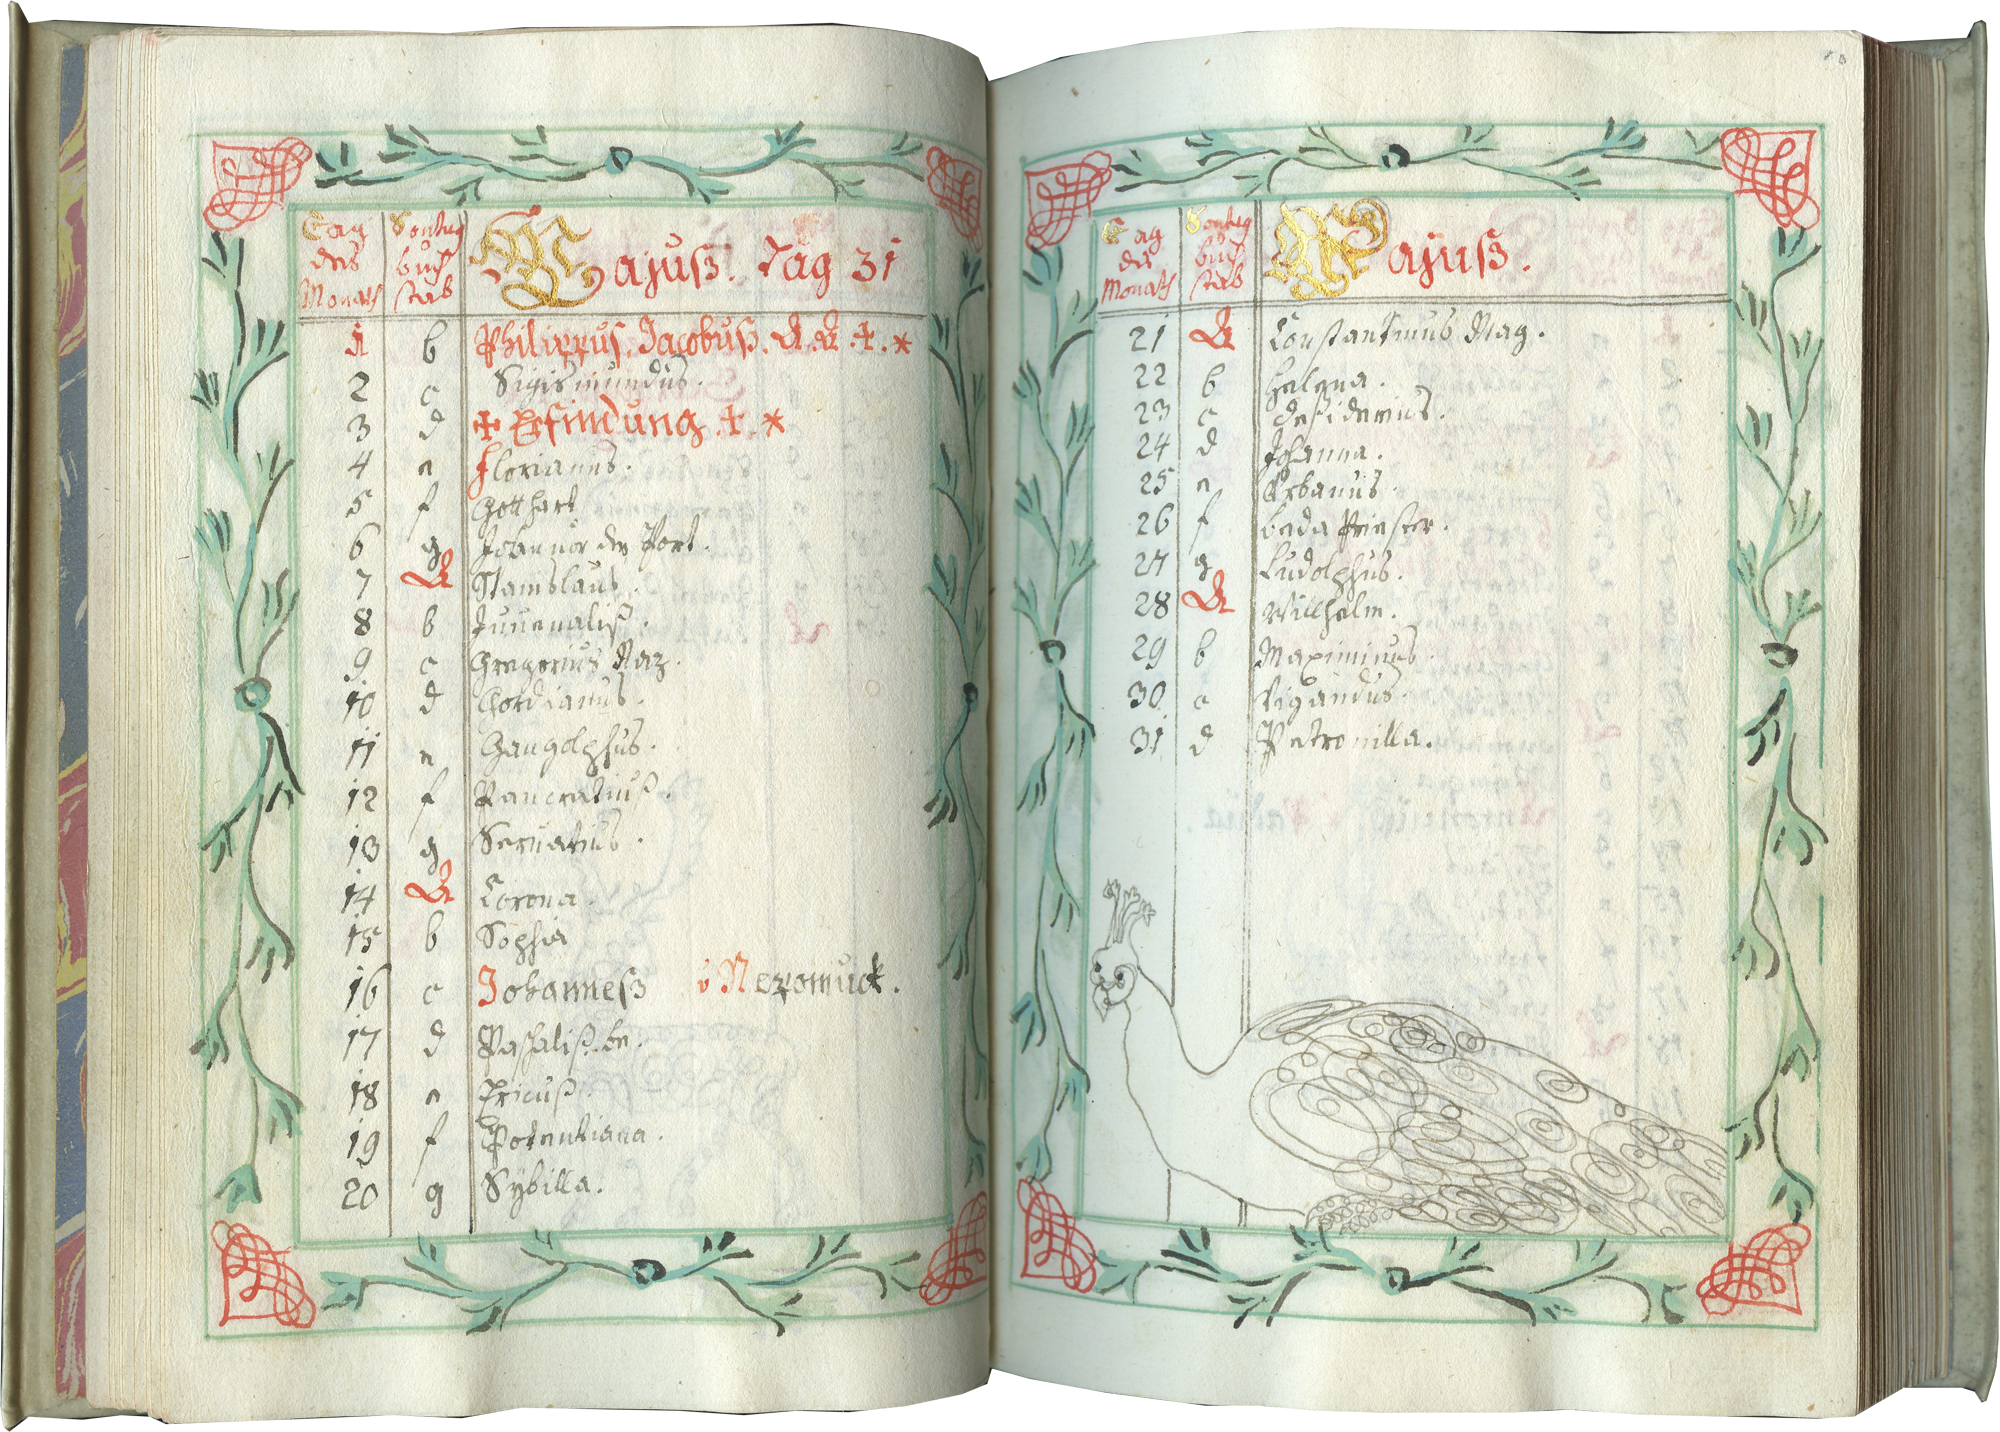 Tag Sontag Majuß. Tag 31
des buch
Monats stab
1 b Philippus, Jacobuß. A. A. +. *
2 c Sigismundus.
3 d + Erfindung. +. *
4 e Florianus.
5 f Gotthart
6 g Johannes vor der Port.
7 A Stanislaus.
8 b Juuenaliß.
9 c Gregorius Naz.
10 d Gordianus.
11 e Gangolphus.
12 f Pancratiuß.
13 g Seruatius.
14 A Corona.
15 b Sophia
16 c Johanneß v Nepomuck.
17 d Paschaliß. be.
18 e Ericuß.
19 f Potentiana.
20 g Sybilla.
Tag Sontag Majuß.
des buch
Monats stab
21 A Constantinus Mag.
22 b Helena.
23 c Desiderius.
24 d Johanna.
25 e Urbanus.
26 f beda Priester.
27 g Ludolphus.
28 A Willhelm.
29 b Maximinus.
30 c Vigandus.
31 d Petronilla.